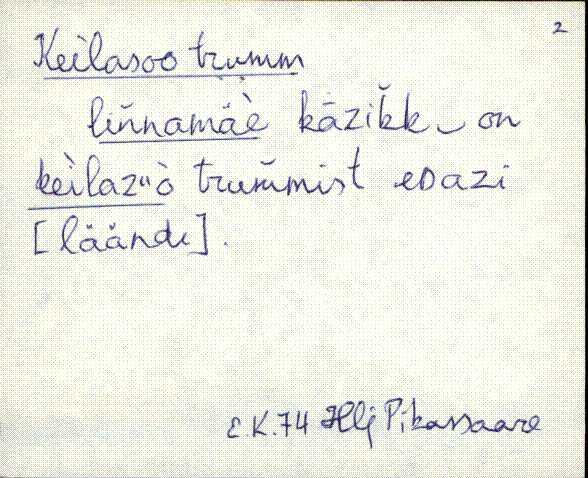 2
Keilasoo trumm
liňnamäè kāziǩk‿on
kèilaz"ò trum̌mist edazi
[läände].
E.K.74 Hlj Pikassaare